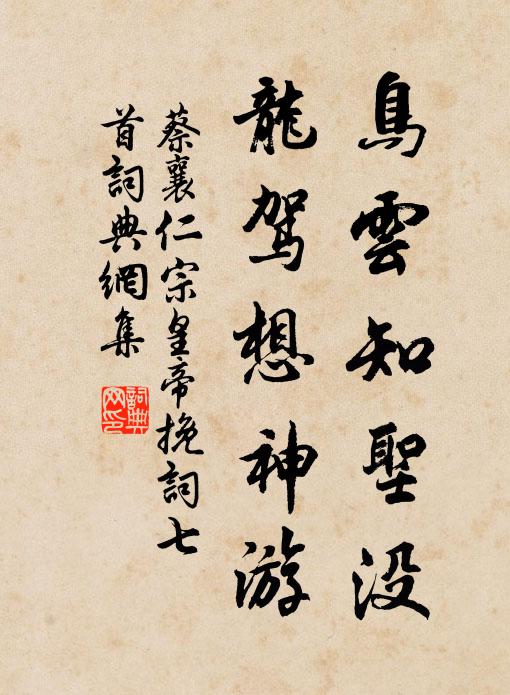 鳥雲知聖没
龍駕想神游
蔡襄仁宗皇帝挽詞七
首詞典網集
詞典
网印